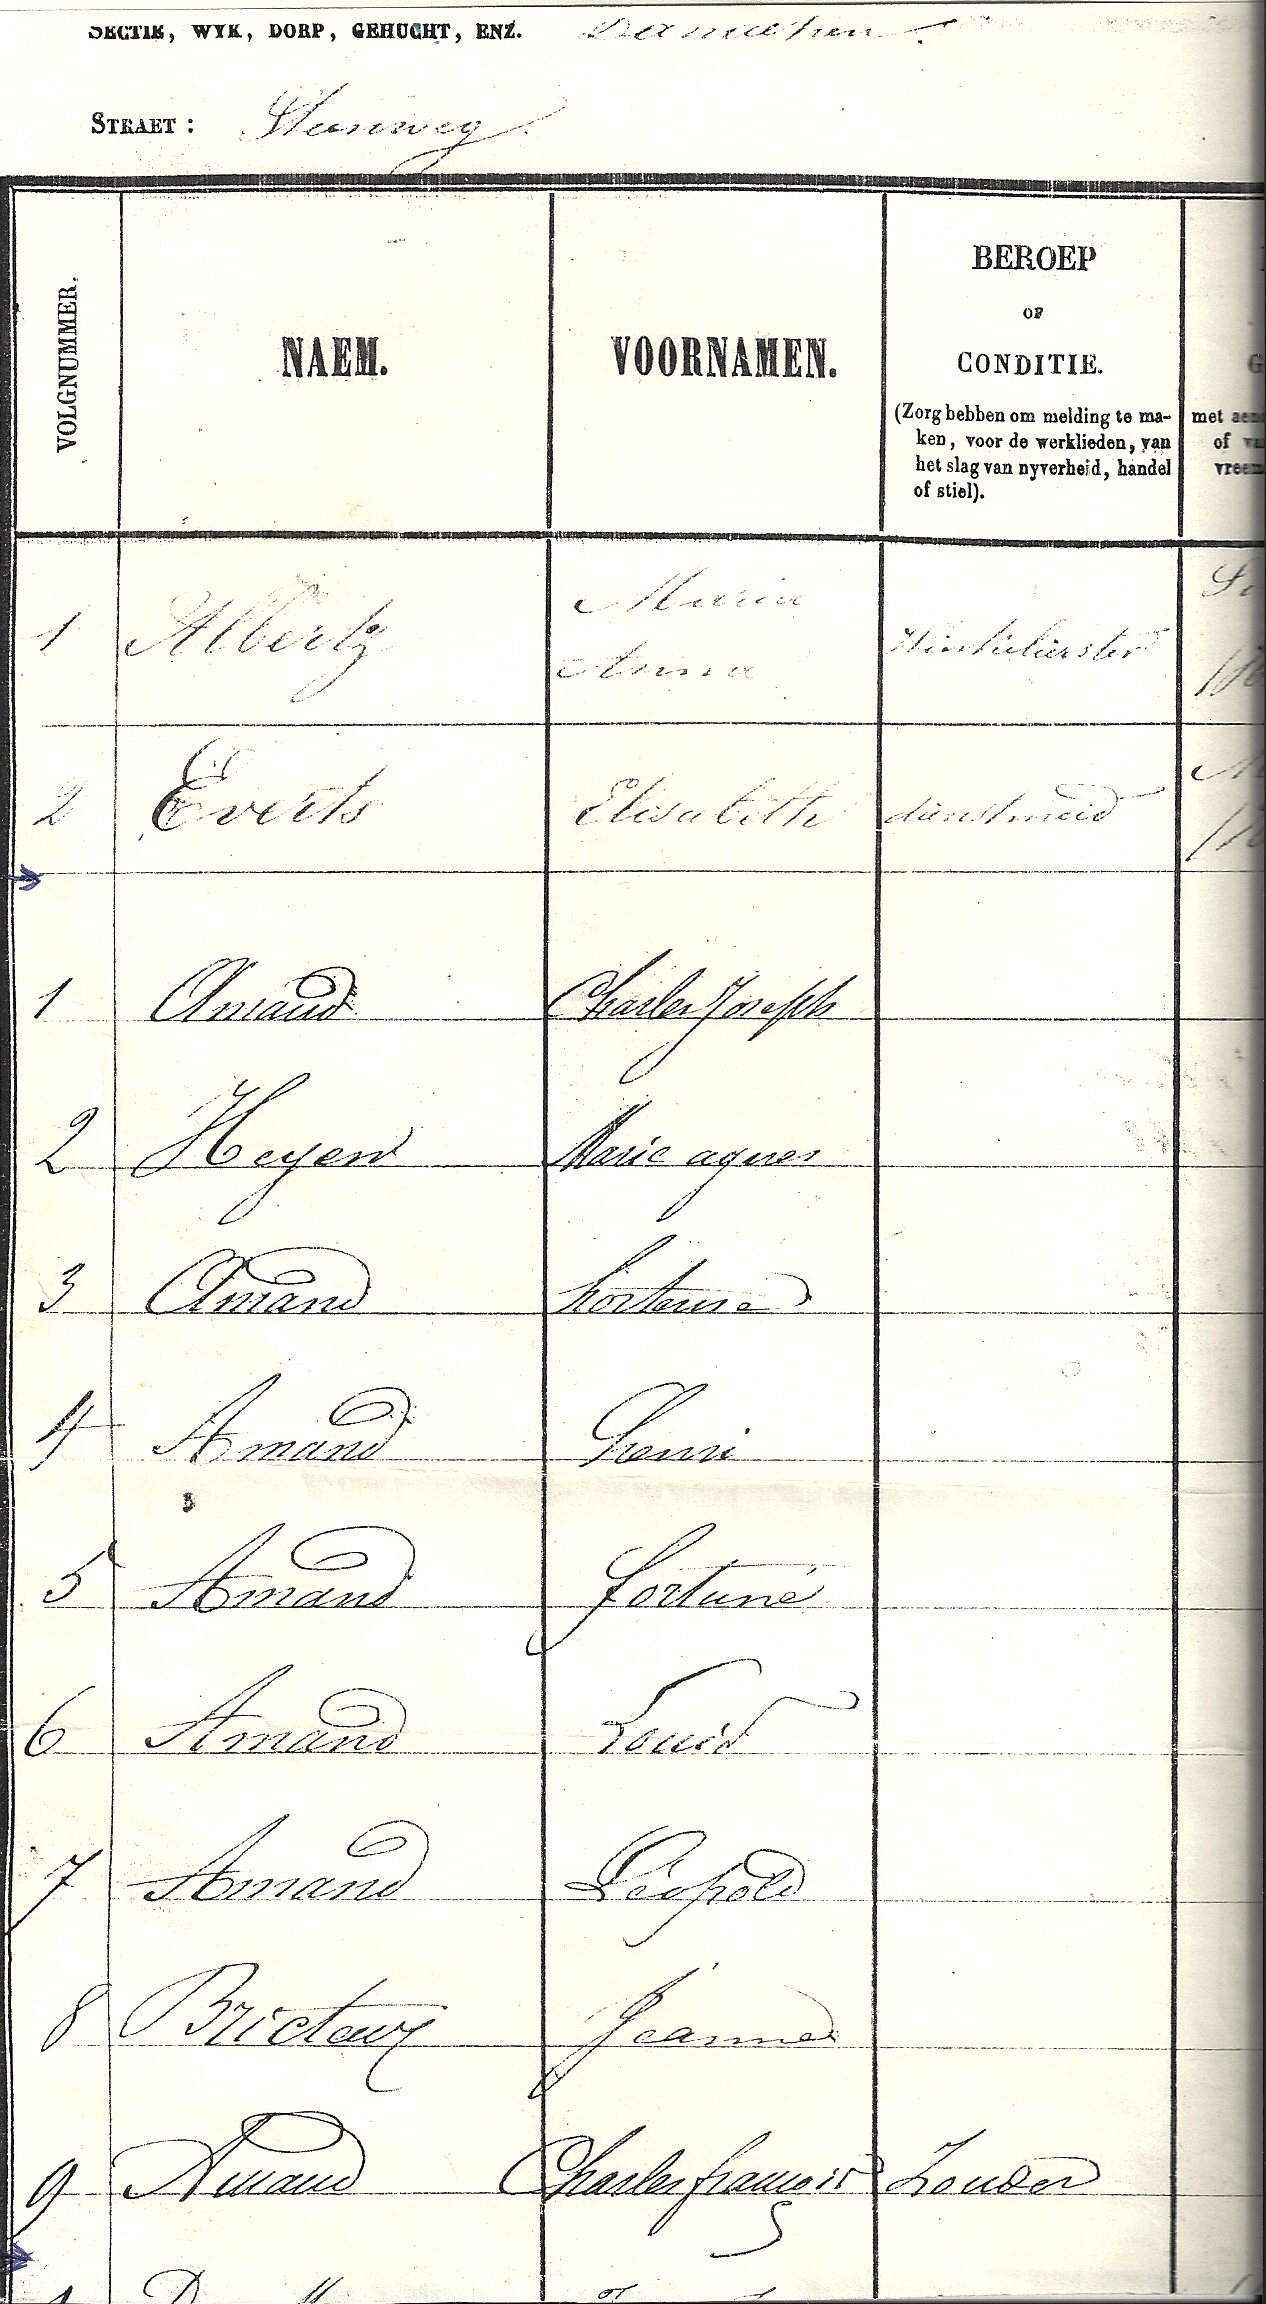 SECTIE, WYK, DORP, GEHUCHT, ENZ.
STRAET : Steenweg
VOLGNUMMER.
NAEM.
VOORNAMEN.
BEROEP
OF
CONDITIE.
(Zorg hebben om melding te ma-
ken, voor de werklieden, van
het slag van nyverheid, handel
of stiel).
met
of
1 Albertz Maria
Anna Winkelierster
2 Everts Elisabeth dienstmeid
1 Amand Charles Joseph
2 Heyen Marie agnes
3 Amand hortense
4 Amand henri
5 Amand fortuné
6 Amand Louis
7 Amand Léopold
8 Bricteux Jeanne
9 Amand Charles francois Zonder